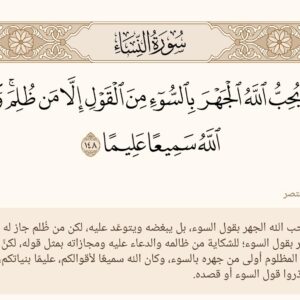 سُورَةُ النِّسَاءِ
يُحِبُّ ٱللَّهُ ٱلۡجَهۡرَ بِٱلسُّوٓءِ مِنَ ٱلۡقَوۡلِ إِلَّا مَن ظُلِمَۚ
ٱللَّهُ سَمِيعًا عَلِيمًا ١٤٨
الله الجهر بقول السوء، بل يبغضه ويتوعّد عليه، لكن من ظُلم جاز له
بقول السوء؛ للشكاية من ظالمه والدعاء عليه ومجازاته بمثل قوله، لكنْ
المظلوم أولى من جهره بالسوء، وكان الله سميعًا لأقوالكم، عليمًا بنياتكم،
قول السوء أو قصده.